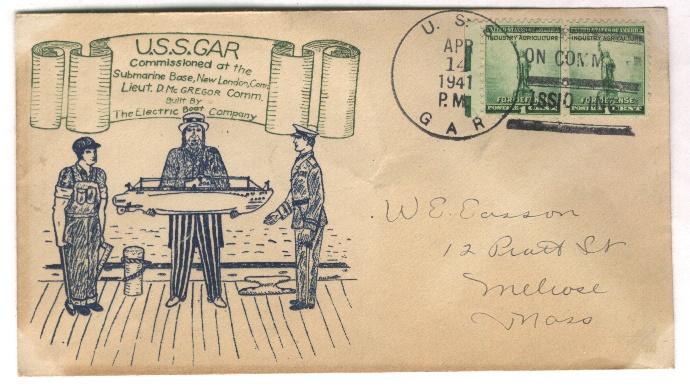 U.S.S.GAR
Commissioned at the
Submarine Base, New London, Conn.
Lieut. D. McGREGOR Comm.
Built By
The Electric Boat Company
U. S. S.
APR
14
1941
P.M.
GAR
ON COMM
ISSIO
UNITED STATES OF AMERICA
INDUSTRY AGRICULTURE
FOR DEFENSE
POSTAGE 1 CENT
UNITED STATES OF AMERICA
INDUSTRY AGRICULTURE
FOR DEFENSE
POSTAGE 1 CENT
W E. Easson
12 Pratt St
Melrose
Mass